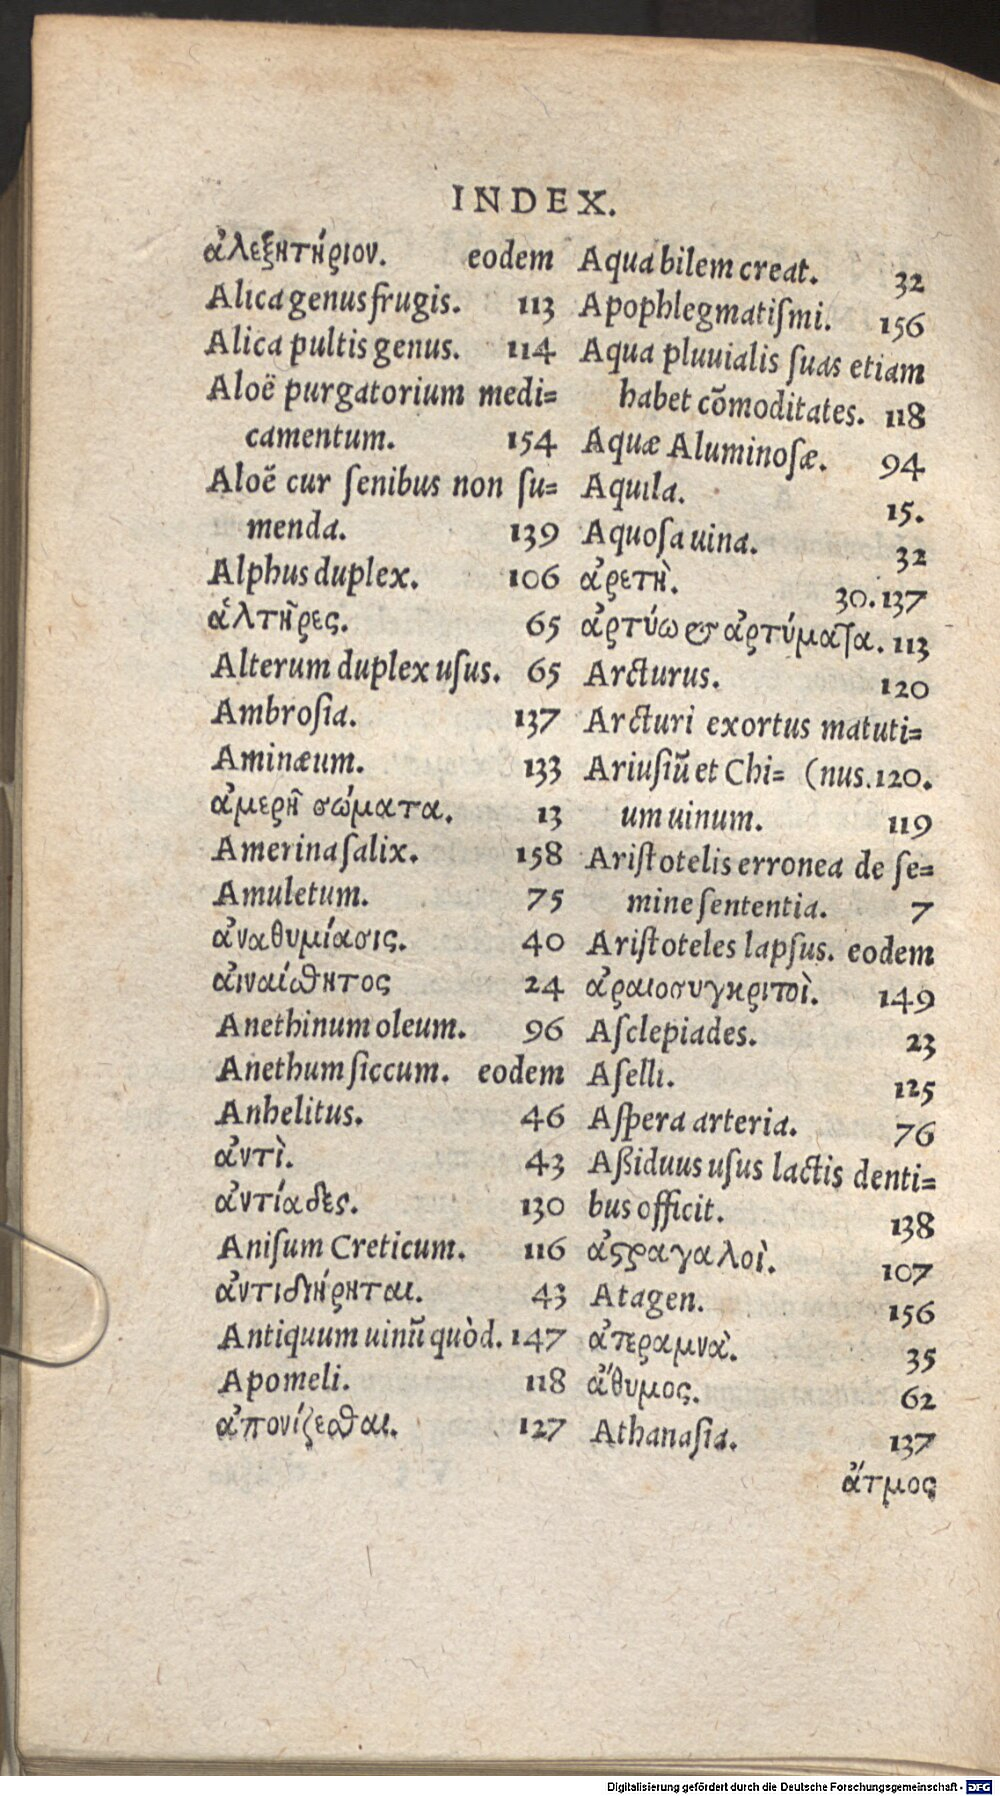 INDEX.
ἀλεξητήριον. eodem
Alica genus frugis. 113
Alica pultis genus. 114
Aloë purgatorium medi=
camentum. 154
Aloë cur ſenibus non ſu=
menda. 139
Alphus duplex. 106
ἁλτῆρες. 65
Alterum duplex uſus. 65
Ambroſia. 137
Aminæum. 133
ἀμερῆ σώματα. 13
Amerina ſalix. 158
Amuletum. 75
ἀναθυμίασις. 40
ἀναίσθητος 24
Anethinum oleum. 96
Anethum ſiccum. eodem
Anhelitus. 46
ἀντὶ. 43
ἀντιάδες. 130
Aniſum Creticum. 116
ἀντιδιῄρηται. 43
Antiquum uinū quòd. 147
Apomeli. 118
ἀπονίζεσθαι. 127
Aqua bilem creat. 32
Apophlegmatiſmi. 156
Aqua pluuialis ſuas etiam
habet cōmoditates. 118
Aquæ Aluminoſæ. 94
Aquila. 15.
Aquoſa uina. 32
ἀρετὴ. 30. 137
ἀρτύω & ἀρτύματα. 113
Arcturus. 120
Arcturi exortus matuti=
Ariuſiū et Chi= (nus. 120.
um uinum. 119
Ariſtotelis erronea de ſe=
mine ſententia. 7
Ariſtoteles lapſus. eodem
ἀραιοσυγκριτοὶ. 149
Aſclepiades. 23
Aſelli. 125
Aſpera arteria. 76
Aßiduus uſus lactis denti=
bus officit. 138
ἀςραγαλοὶ. 107
Atagen. 156
ἀτεραμνὰ. 35
ἄθυμος. 62
Athanaſia. 137
ἄτμος
Digitalisierung gefördert durch die Deutsche Forschungsgemeinschaft - DFG